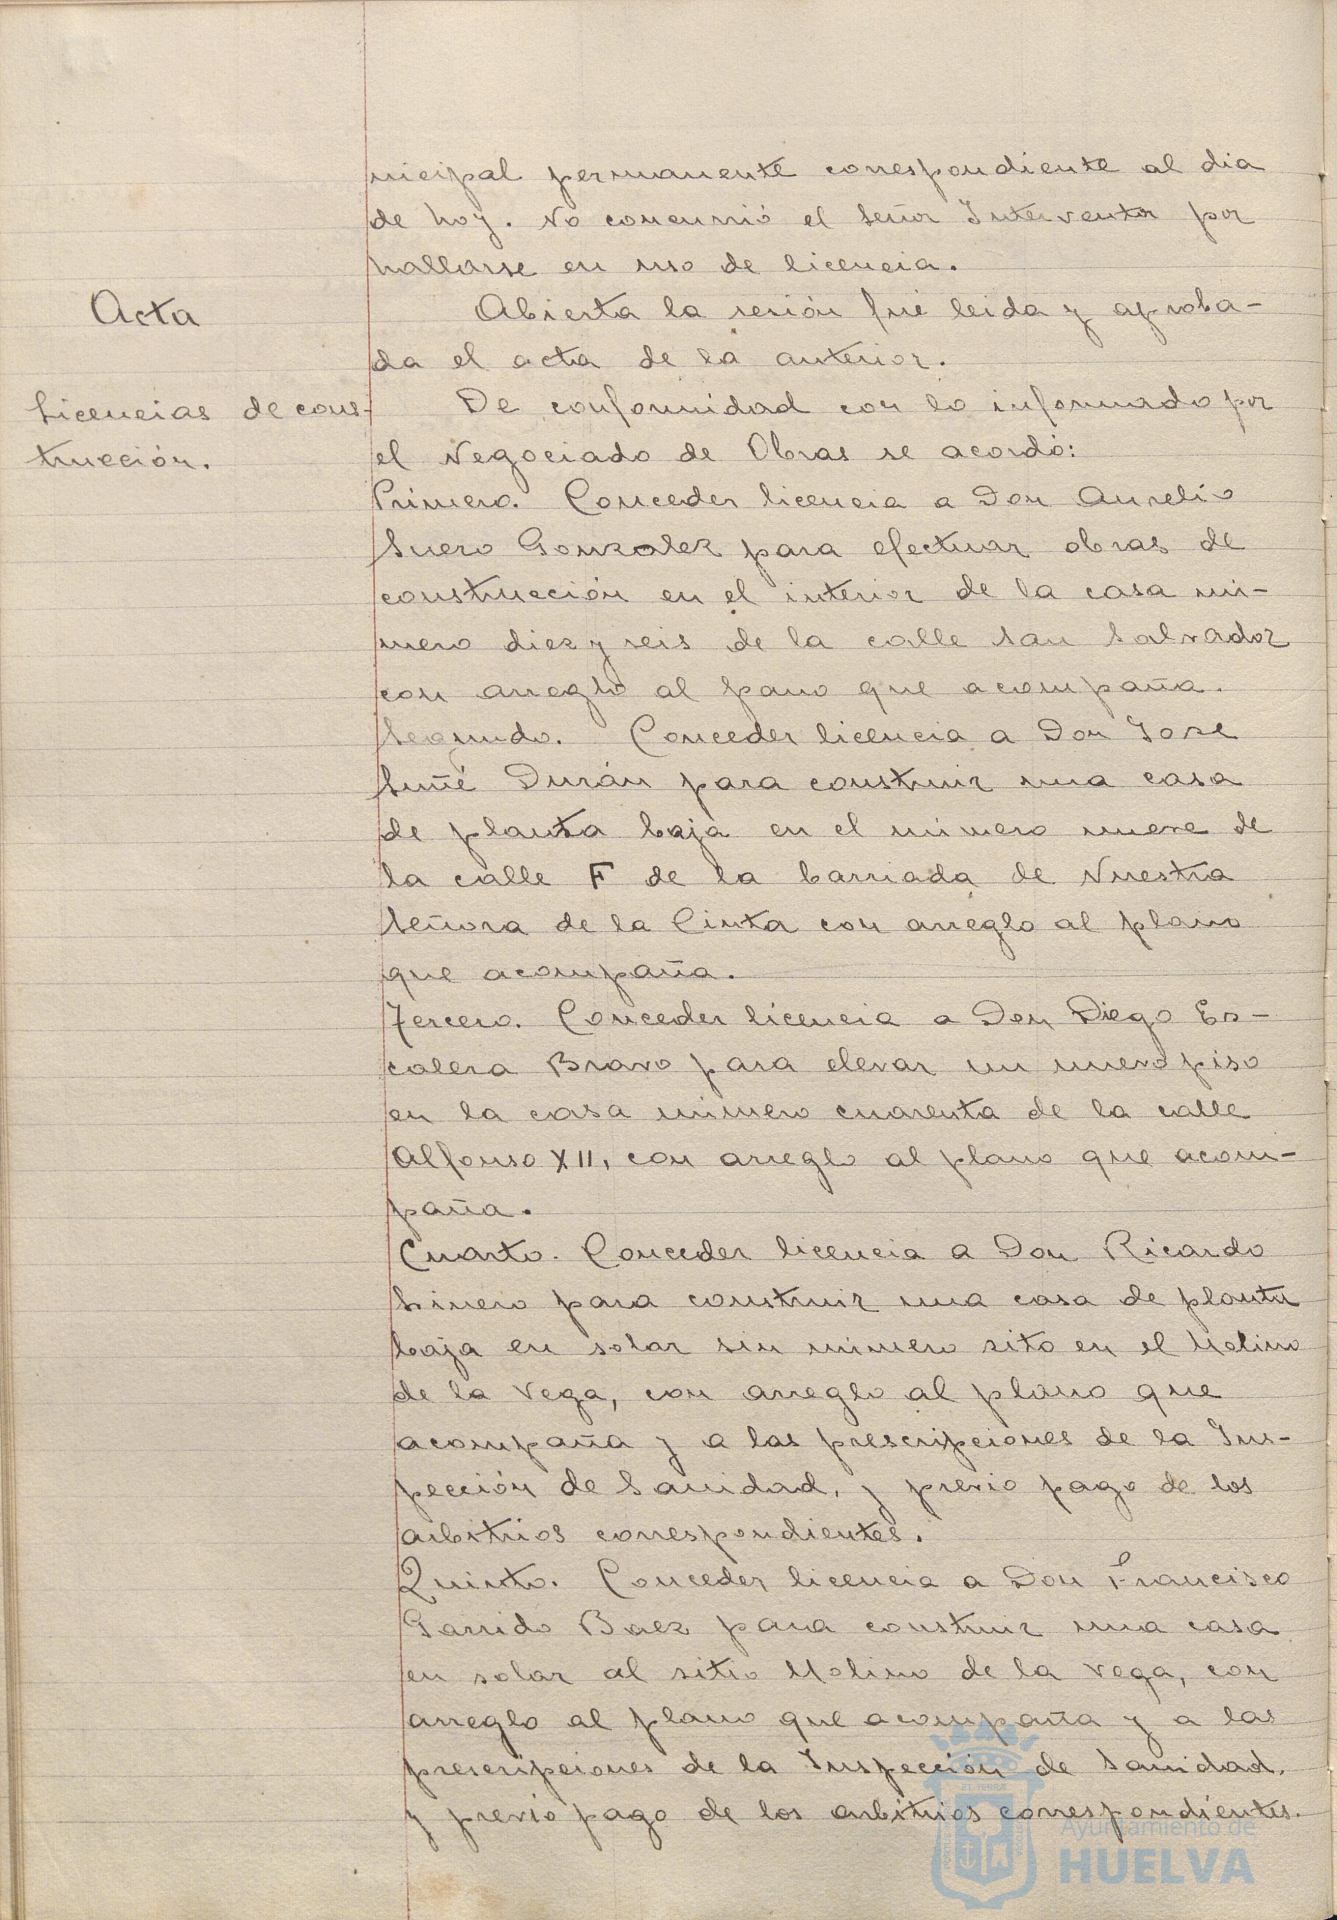 nicipal permanente correspondiente al dia
de hoy. No concurrió el Señor Interventor por
hallarse en uso de licencia.
Acta
Abierta la sesión fué leida y aproba-
da el acta de la anterior.
Licencias de cons-
trucción.
De conformidad con lo informado por
el Negociado de Obras se acordó:
Primero. Conceder licencia a Don Aurelio
Suero Gonzalez para efectuar obras de
construcción en el interior de la casa nú-
mero diez y seis de la calle San Salvador
con arreglo al pano que acompaña.
Segundo. Conceder licencia a Don Jose
Suñé Durán para construir una casa
de planta baja en el número nueve de
la calle F de la barriada de Nuestra
Señora de la Cinta con arreglo al plano
que acompaña.
Tercero. Conceder licencia a Don Diego Es-
calera Bravo para elevar un nuevo piso
en la casa número cuarenta de la calle
Alfonso XII, con arreglo al plano que acom-
paña.
Cuarto. Conceder licencia a Don Ricardo
Linero para construir una casa de planta
baja en solar sin número sito en el Molino
de la Vega, con arreglo al plano que
acompaña y a las prescripciones de la Ins-
pección de Sanidad, y previo pago de los
arbitrios correspondientes.
Quinto. Conceder licencia a Don Francisco
Garrido Baez para construir una casa
en solar al sitio Molino de la Vega, con
arreglo al plano que acompaña y a las
prescripciones de la Inspección de Sanidad,
y previo pago de los arbitrios correspondientes.
Ayuntamiento de
HUELVA